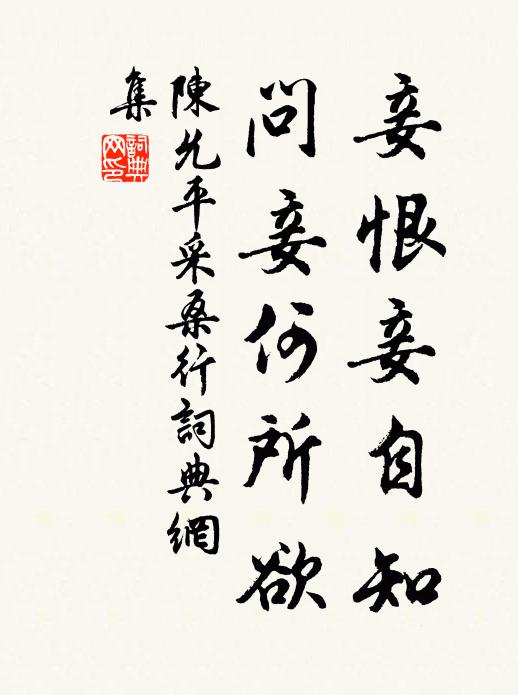 妾恨妾自知
問妾何所欲
陳允平采桑行詞典網
集
詞典
网印